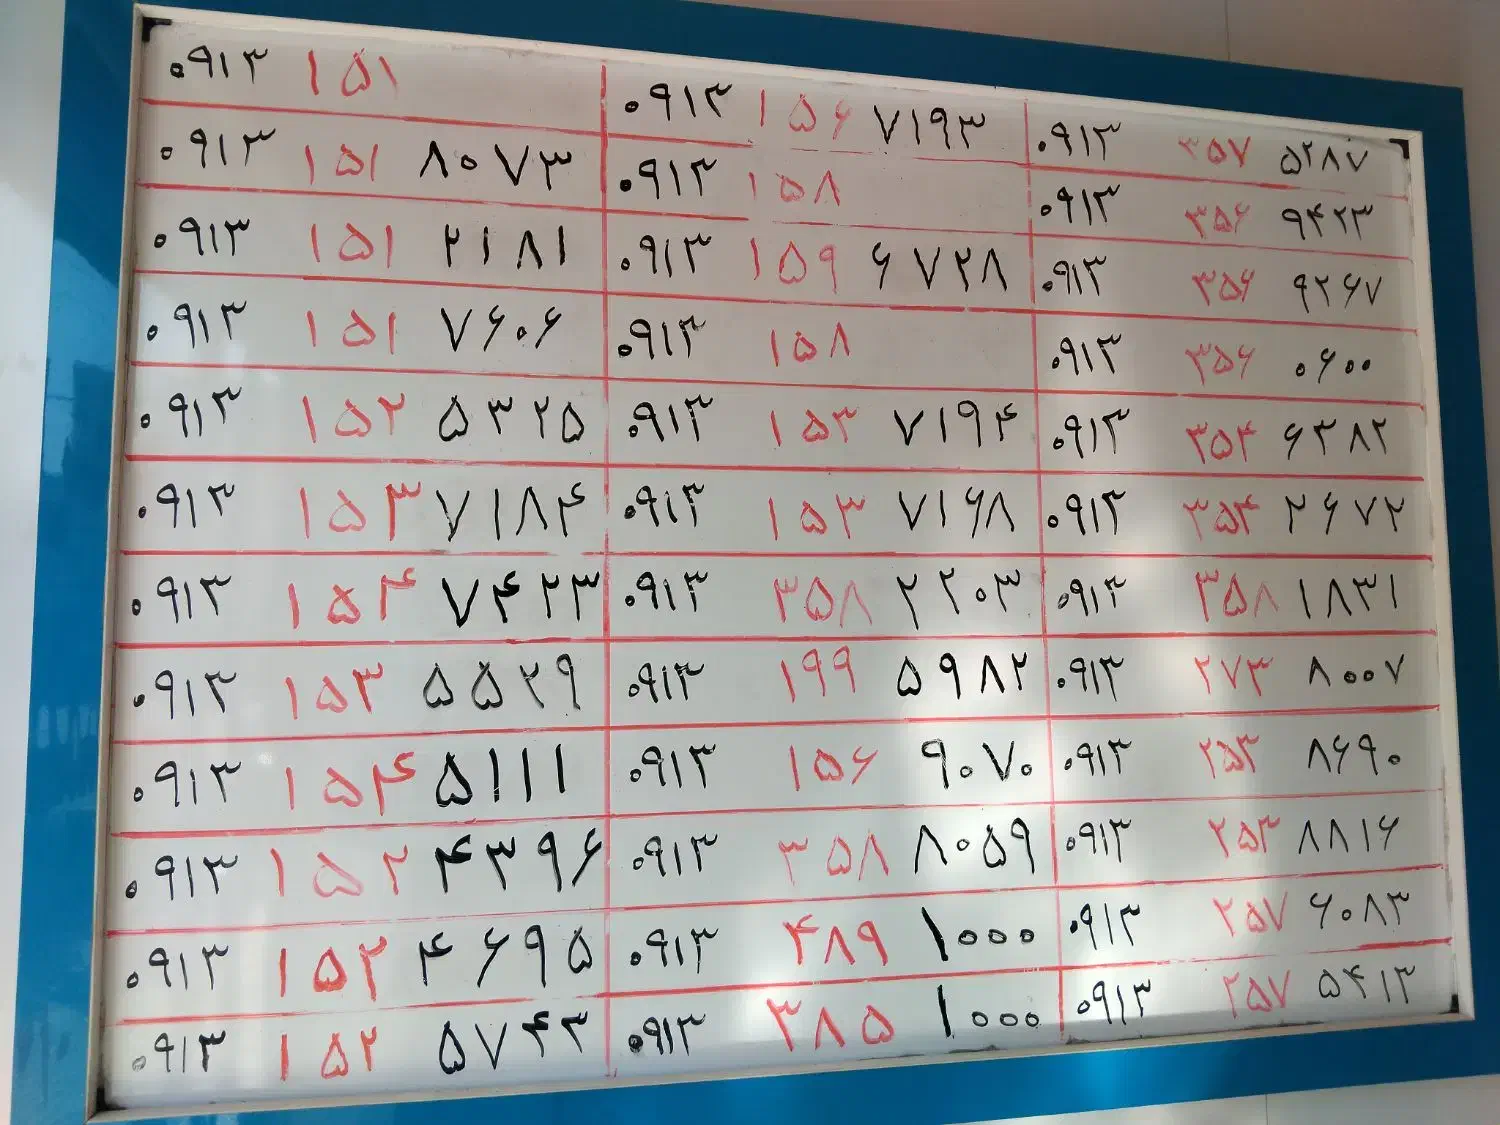 ۰۹۱۳ ۱۵۱
۰۹۱۳ ۱۵۱ ۸۰۷۳
۰۹۱۳ ۱۵۱ ۲۱۸۱
۰۹۱۳ ۱۵۱ ۷۶۰۶
۰۹۱۳ ۱۵۲ ۵۳۲۵
۰۹۱۳ ۱۵۳ ۷۱۸۴
۰۹۱۳ ۱۵۴ ۷۴۲۳
۰۹۱۳ ۱۵۳ ۵۵۲۹
۰۹۱۳ ۱۵۴ ۵۱۱۱
۰۹۱۳ ۱۵۲ ۴۳۹۶
۰۹۱۳ ۱۵۲ ۴۶۹۵
۰۹۱۳ ۱۵۲ ۵۷۴۳
۰۹۱۳ ۱۵۶ ۷۱۹۳
۰۹۱۳ ۱۵۸
۰۹۱۳ ۱۵۹ ۶۷۲۸
۰۹۱۳ ۱۵۸
۰۹۱۳ ۱۵۳ ۷۱۹۴
۰۹۱۳ ۱۵۳ ۷۱۶۸
۰۹۱۳ ۳۵۸ ۲۲۰۳
۰۹۱۳ ۱۹۹ ۵۹۸۲
۰۹۱۳ ۱۵۶ ۹۰۷۰
۰۹۱۳ ۳۵۸ ۸۰۵۹
۰۹۱۳ ۴۸۹ ۱۰۰۰
۰۹۱۳ ۳۸۵ ۱۰۰۰
۰۹۱۳ ۳۵۷ ۵۲۸۷
۰۹۱۳ ۳۵۶ ۹۴۲۳
۰۹۱۳ ۳۵۶ ۹۲۶۷
۰۹۱۳ ۳۵۶ ۰۶۰۰
۰۹۱۳ ۳۵۴ ۶۳۸۲
۰۹۱۳ ۳۵۴ ۲۶۷۲
۰۹۱۳ ۳۵۸ ۱۸۳۱
۰۹۱۳ ۲۷۳ ۸۰۰۷
۰۹۱۳ ۲۵۳ ۸۶۹۰
۰۹۱۳ ۲۵۳ ۸۸۱۶
۰۹۱۳ ۲۵۷ ۶۰۸۳
۰۹۱۳ ۲۵۷ ۵۴۱۳